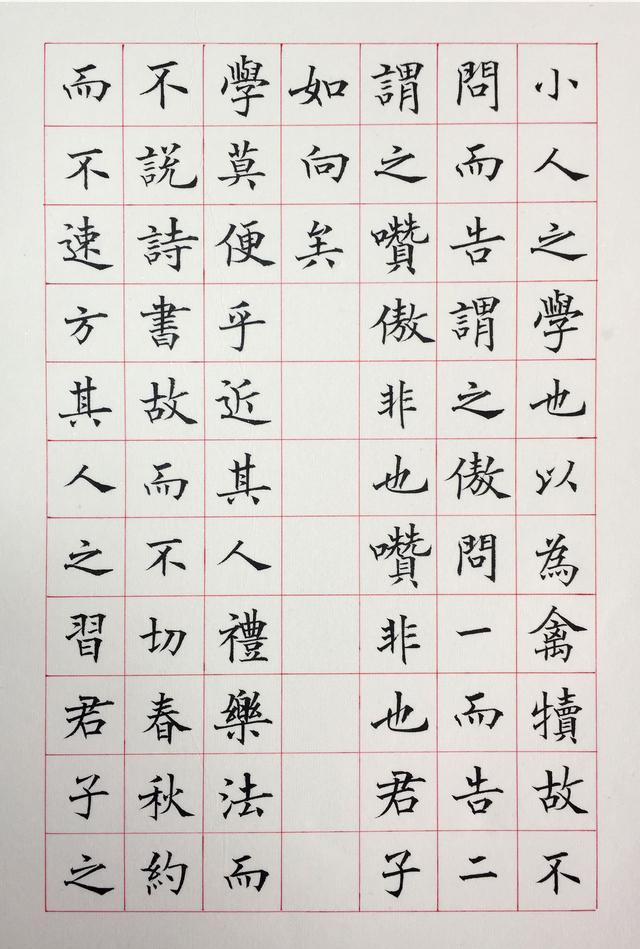 小人之學也以為禽犢故不
問而告謂之傲問一而告二
謂之囋傲非也囋非也君子
如向矣
學莫便乎近其人禮樂法而
不說詩書故而不切春秋約
而不速方其人之習君子之